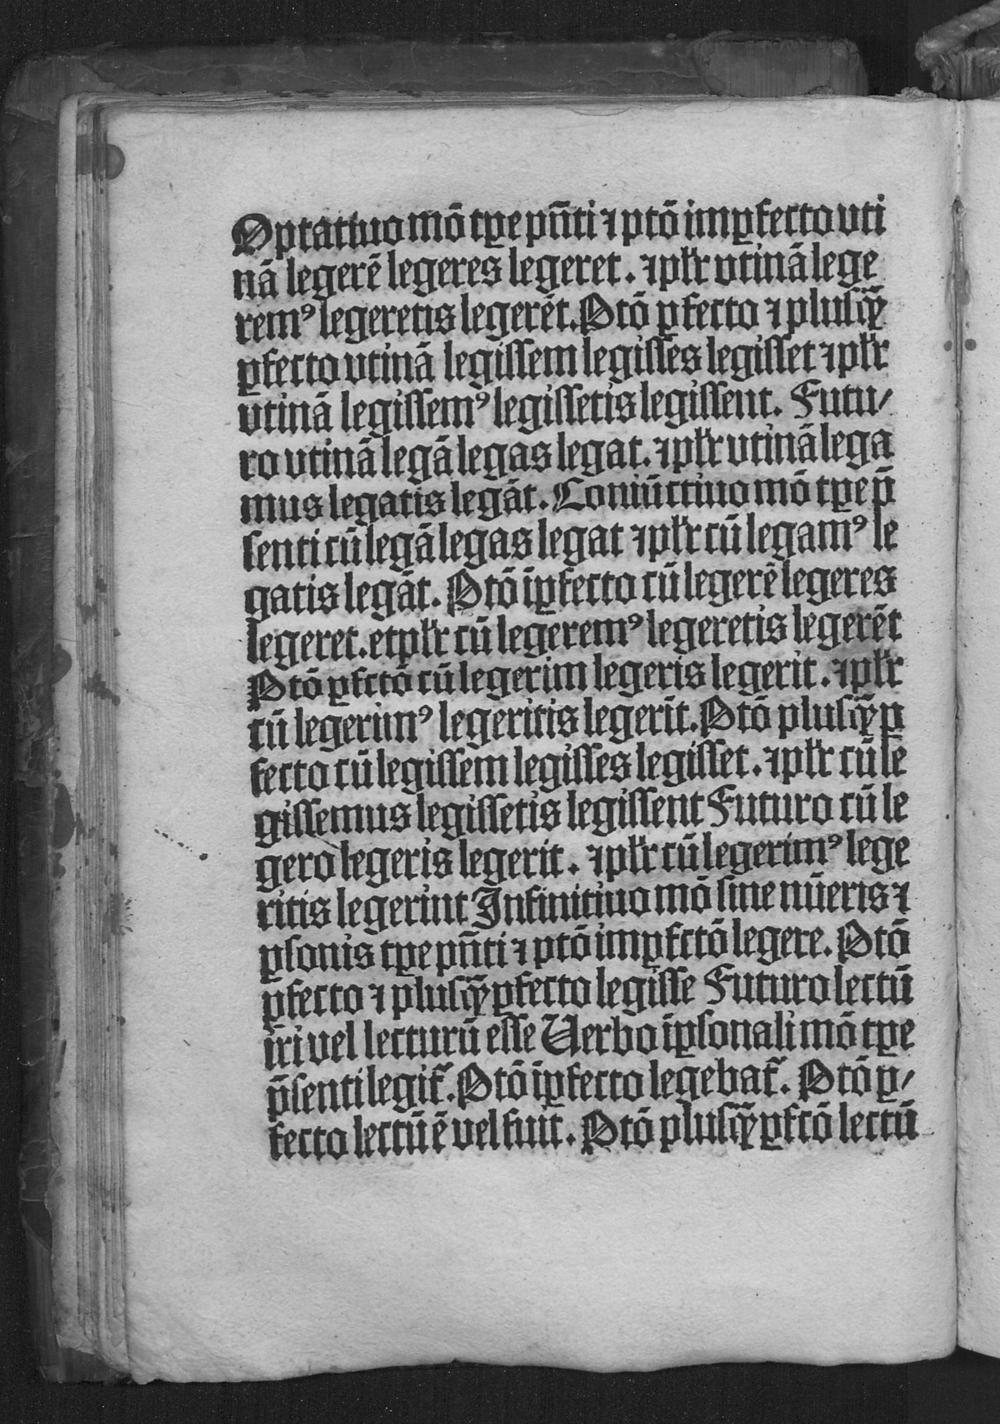 Optatiuo mō tꝑe pn̄ti ⁊ ptō imꝑfecto vti
nā legerē legeres legeret. ⁊ plr̄ vtinā lege
remꝰ legeretis legerēt. Ptō ꝑfecto ⁊ plusqꝫ̄
ꝑfecto vtinā legissem legisses legisset ⁊ plr̄
vtinā legissemꝰ legissetis legissent. Futu⸗
ro vtinā legā legas legat. ⁊ plr̄ vtinā lega
mus legatis legāt. Coniūctiuo mō tꝑe p̄
senti cū legā legas legat ⁊ plr̄ cū legamꝰ le
gatis legāt. Ptō īꝑfecto cū legerē legeres
legeret. et plr̄ cū legeremꝰ legeretis legerēt
Ptō ꝑfctō cū legerim legeris legerit. ⁊ plr̄
cū legerimꝰ legeritis legerīt. Ptō plusqꝫ̄ ꝑ
fecto cū legissem legisses legisset. ⁊ plr̄ cū le
gissemus legissetis legissent Futuro cū le
gero legeris legerit. ⁊ plr̄ cū legerimꝰ lege
ritis legerint Infinitiuo mō sine nūeris ⁊
ꝑsonis tꝑe pn̄ti ⁊ ptō imꝑfctō legere. Ptō
ꝑfecto ⁊ plusqꝫ̄ ꝑfecto legisse Futuro lectū
iri vel lecturū esse Uerbo īꝑsonali mō tꝑe
p̄senti legit᷑. Ptō īꝑfecto legebat᷑. Ptō ꝑ⸗
fecto lectū ē vel fuit. Ptō plusqꝫ̄ ꝑfctō lectū